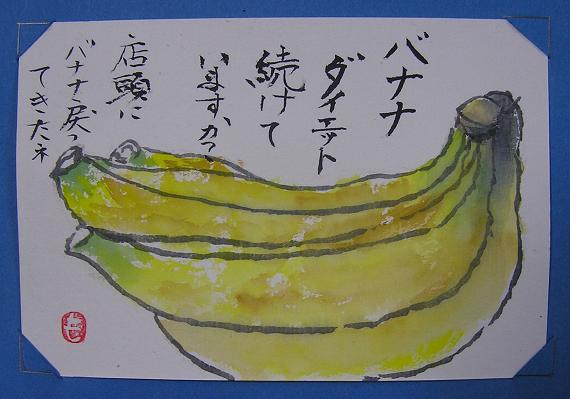 バナナ
ダイエット
続けて
いますか?
店頭に
バナナ戻っ
てきたネ